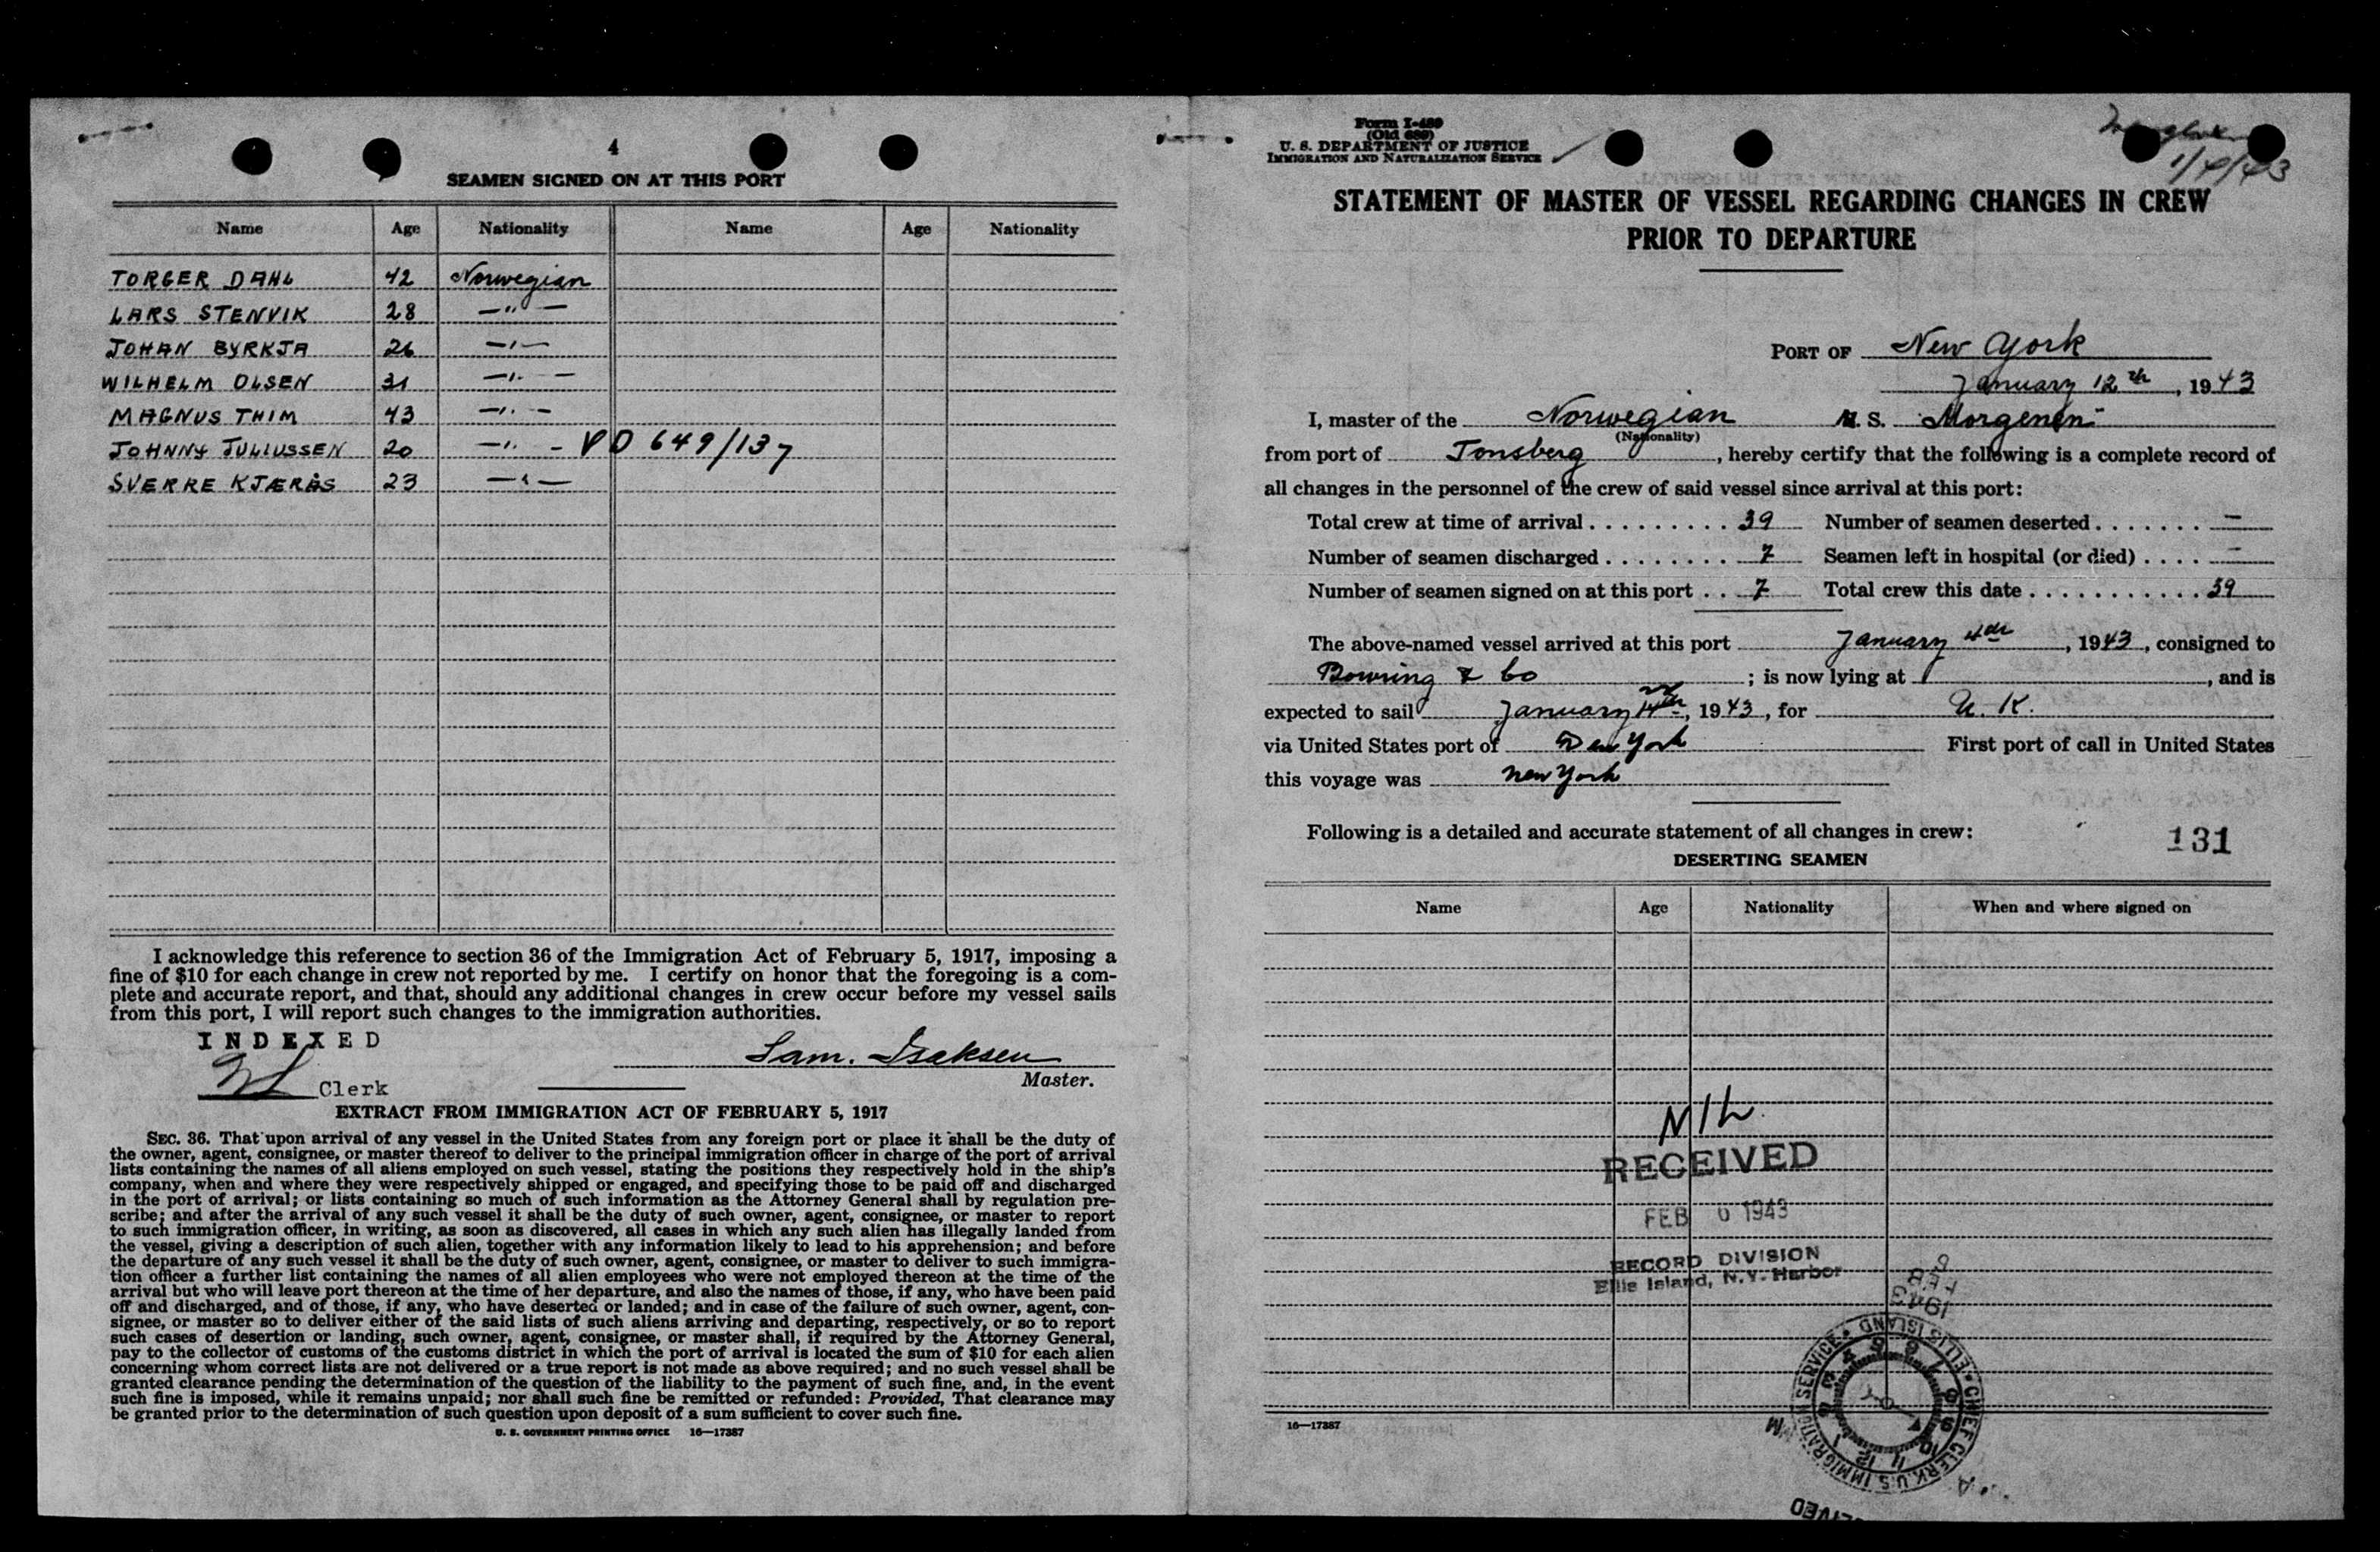 4
SEAMEN SIGNED ON AT THIS PORT
Name Age Nationality Name Age Nationality
TORGER DAHL 42 Norwegian
LARS STENVIK 28 —"—
JOHAN BYRKJA 26 —"—
WILHELM OLSEN 31 —"—
MAGNUS THIM 43 —"—
JOHNNY JULIUSSEN 20 —"— VD 649/137
SVERRE KJÆRÅS 23 —"—
I acknowledge this reference to section 36 of the Immigration Act of February 5, 1917, imposing a
fine of $10 for each change in crew not reported by me. I certify on honor that the foregoing is a com-
plete and accurate report, and that, should any additional changes in crew occur before my vessel sails
from this port, I will report such changes to the immigration authorities.
INDEXED
Clerk
Sam. Isaksen
Master.
EXTRACT FROM IMMIGRATION ACT OF FEBRUARY 5, 1917
SEC. 36. That upon arrival of any vessel in the United States from any foreign port or place it shall be the duty of
the owner, agent, consignee, or master thereof to deliver to the principal immigration officer in charge of the port of arrival
lists containing the names of all aliens employed on such vessel, stating the positions they respectively hold in the ship's
company, when and where they were respectively shipped or engaged, and specifying those to be paid off and discharged
in the port of arrival; or lists containing so much of such information as the Attorney General shall by regulation pre-
scribe; and after the arrival of any such vessel it shall be the duty of such owner, agent, consignee, or master to report
to such immigration officer, in writing, as soon as discovered, all cases in which any such alien has illegally landed from
the vessel, giving a description of such alien, together with any information likely to lead to his apprehension; and before
the departure of any such vessel it shall be the duty of such owner, agent, consignee, or master to deliver to such immigra-
tion officer a further list containing the names of all alien employees who were not employed thereon at the time of the
arrival but who will leave port thereon at the time of her departure, and also the names of those, if any, who have been paid
off and discharged, and of those, if any, who have deserted or landed; and in case of the failure of such owner, agent, con-
signee, or master so to deliver either of the said lists of such aliens arriving and departing, respectively, or so to report
such cases of desertion or landing, such owner, agent, consignee, or master shall, if required by the Attorney General,
pay to the collector of customs of the customs district in which the port of arrival is located the sum of $10 for each alien
concerning whom correct lists are not delivered or a true report is not made as above required; and no such vessel shall be
granted clearance pending the determination of the question of the liability to the payment of such fine, and, in the event
such fine is imposed, while it remains unpaid; nor shall such fine be remitted or refunded: Provided, That clearance may
be granted prior to the determination of such question upon deposit of a sum sufficient to cover such fine.
U. S. GOVERNMENT PRINTING OFFICE 16—17387
Form I-489
(Old 689)
U. S. DEPARTMENT OF JUSTICE
IMMIGRATION AND NATURALIZATION SERVICE
1/4/43
STATEMENT OF MASTER OF VESSEL REGARDING CHANGES IN CREW
PRIOR TO DEPARTURE
PORT OF New York
January 12th, 1943
I, master of the Norwegian M. S. Morgenen
(Nationality)
from port of Tonsberg, hereby certify that the following is a complete record of
all changes in the personnel of the crew of said vessel since arrival at this port:
Total crew at time of arrival . . . . . . . . . 39 Number of seamen deserted . . . . . . . —
Number of seamen discharged . . . . . . . . 7 Seamen left in hospital (or died) . . . . —
Number of seamen signed on at this port . . 7 Total crew this date . . . . . . . . . . . 39
The above-named vessel arrived at this port January 4th, 1943, consigned to
Bowring & Co ; is now lying at , and is
expected to sail January 14th, 1943, for U. K.
via United States port of New York First port of call in United States
this voyage was New York
Following is a detailed and accurate statement of all changes in crew:
131
DESERTING SEAMEN
Name Age Nationality When and where signed on
NIL
RECEIVED
FEB 6 1943
RECORD DIVISION
Ellis Island, N.Y. Harbor
FEB
1943
CHIEF CLERK U.S. IMMIGRATION SERVICE • ELLIS ISLAND
16—17387